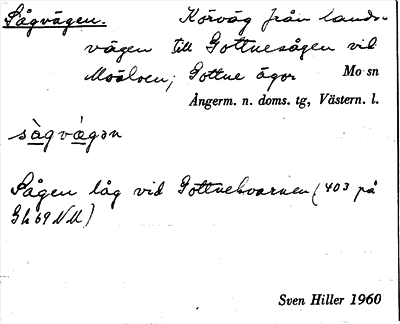 Sågvägen. Körväg från lands-
vägen till Gottnesågen vid
Moälven; Gottne ägor Mo sn
Ångerm. n. doms. tg, Västern. l.
sàgvä̀gən
Sågen låg vid Gottnekvarnen (403 på
Gh 69 NU)
Sven Hiller 1960